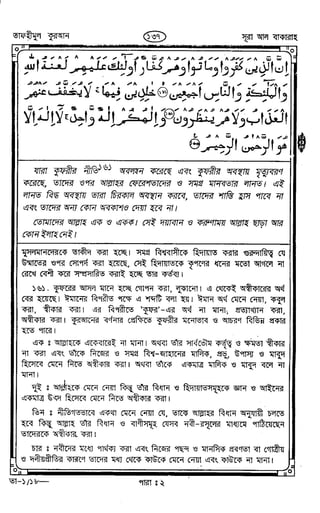 তাফহীমুল কুরআন
১৩৭
সূরা আল বাকারাহ
إِنَّ الَّذِينَ كَفَرُوا وَمَاتُوا وَهُمْ كُفَّارٌ أُولَٰئِكَ عَلَيْهِمْ لَعْنَةُ اللَّهِ
وَالْمَلَائِكَةِ وَالنَّاسِ أَجْمَعِينَ ﴿١٦١﴾ خَالِدِينَ فِيهَا لَا يُخَفَّفُ عَنْهُمُ
الْعَذَابُ وَلَا هُمْ يُنْظَرُونَ ﴿١٦٢﴾ وَإِلَٰهُكُمْ إِلَٰهٌ وَاحِدٌ لَا إِلَٰهَ إِلَّا
هُوَ الرَّحْمَٰنُ الرَّحِيمُ ﴿١٦٣﴾
যারা কুফরীর নীতি১৬১ অবলম্বন করেছে এবং কুফরীর অবস্থায় মৃত্যুবরণ
করেছে, তাদের ওপর আল্লাহর ফেরেশতাদের ও সমগ্র মানবতার লানত। এই
লানত বিদ্ধ অবস্থায় তারা চিরকাল অবস্থান করবে, তাদের শাস্তি হ্রাস পাবে না
এবং তাদের অন্য কোন অবকাশও দেয়া হবে না।
তোমাদের আল্লাহ এক ও একক। সেই দয়াবান ও করুণাময় আল্লাহ ছাড়া আর
কোন ইলাহ নেই।
মুসলমানদেরকে তাকীদ করা হচ্ছে। সমগ্র বিশ্ববাসীকে হিদায়াত করার গুরুদায়িত্ব যে
উম্মাতের ওপর সোপর্দ করা হয়েছে, সেই হিদায়াতকে কৃপণের ধনের মতো আগলে না
রেখে বেশী করে সম্প্রসারিত করাই হচ্ছে তার কর্তব্য।
১৬১. কুফরের আসল মানে হচ্ছে গোপন করা, লুকানো। এ থেকেই অস্বীকারের অর্থ
বের হয়েছে। ঈমানের বিপরীত পক্ষে এ শব্দটি বলা হয়। ঈমান অর্থ মেনে নেয়া, কবুল
করা, স্বীকার করা। এর বিপরীতে 'কুফর'-এর অর্থ না মানা, প্রত্যাখ্যান করা,
অস্বীকার করা। কুরআনের বর্ণনার প্রেক্ষিতে কুফরীর মনোভাব ও আচরণ বিভিন্ন প্রকার
হতে পারে।
এক : আল্লাহকে একেবারেই না মানা। অথবা তাঁর সার্বভৌম কর্তৃত্ব ও ক্ষমতা স্বীকার
না করা এবং তাঁকে নিজের ও সমগ্র বিশ্ব-জাহানের মালিক, প্রভু, উপাস্য ও মাবুদ
হিসেবে মেনে নিতে অস্বীকার করা। অথবা তাঁকে একমাত্র মালিক ও মাবুদ বলে না
মানা।
দুই : আল্লাহকে মেনে নেয়া কিন্তু তাঁর বিধান ও হিদায়াতসমূহকে জ্ঞান ও আইনের
একমাত্র উৎস হিসেবে মেনে নিতে অস্বীকার করা।
তিন : নীতিগতভাবে একথা মেনে নেয়া যে, তাকে আল্লাহর বিধান অনুযায়ী চলতে
হবে কিন্তু আল্লাহ তাঁর বিধান ও বাণীসমূহ যেসব নবী-রসূলের মাধ্যমে পাঠিয়েছেন
তাদেরকে অস্বীকার করা।
চার : নবীদের মধ্যে পার্থক্য করা এবং নিজের পছন্দ ও মানসিক প্রবণতা বা গোত্রীয়
ও দলীয়প্রীতির কারণে তাদের মধ্য থেকে কাউকে মেনে নেয়া এবং কাউকে না মানা।
তা-১/১৮—
পারা : ২